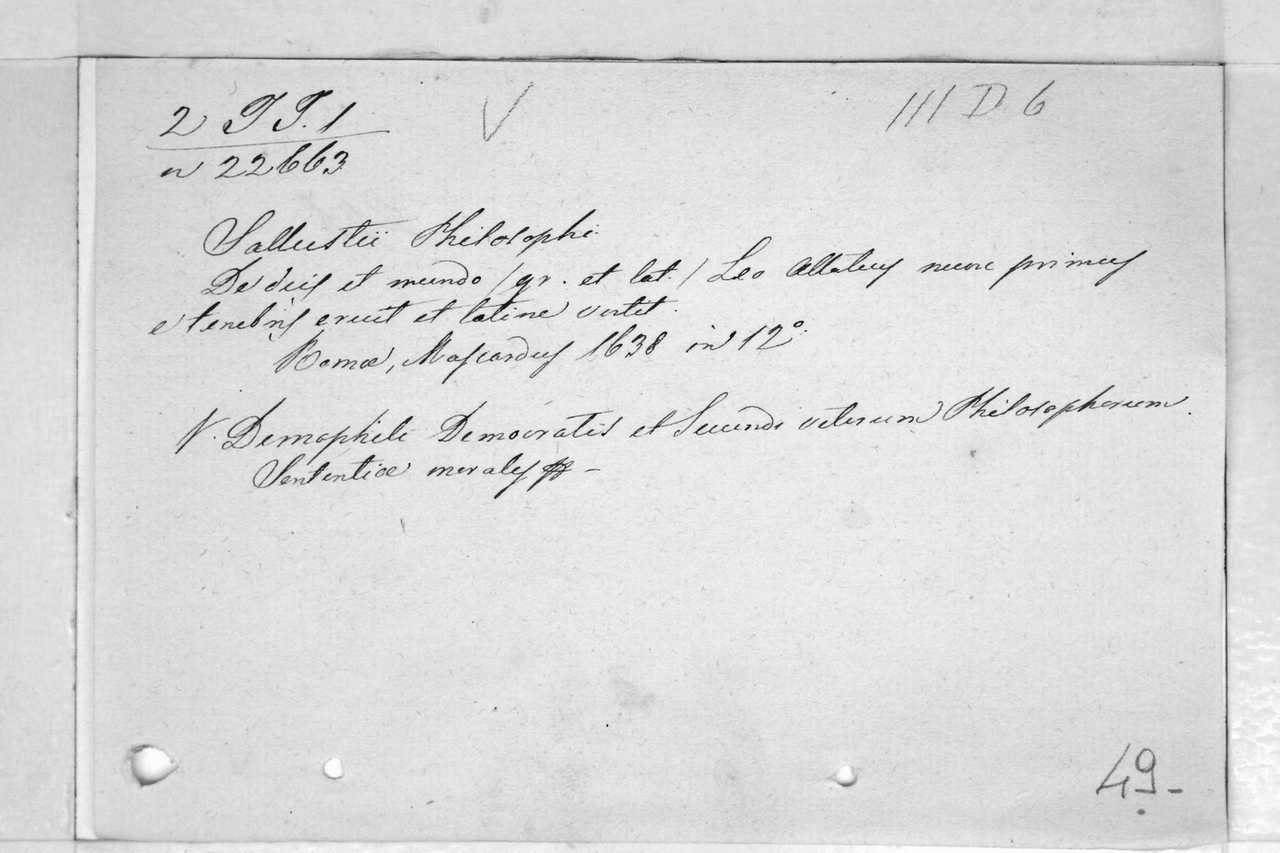 2 TT. 1
n 22663
V
III D 6
Sallustii Philosophi.
De diis et mundo (gr. et lat.) Leo Allatius nunc primus
e tenebris eruit et latine vertit.
Romæ, Mascardus 1638 in 12°.
V. Demophili Democratis et Secundi veterum Philosophorum.
Sententiæ morales
49-